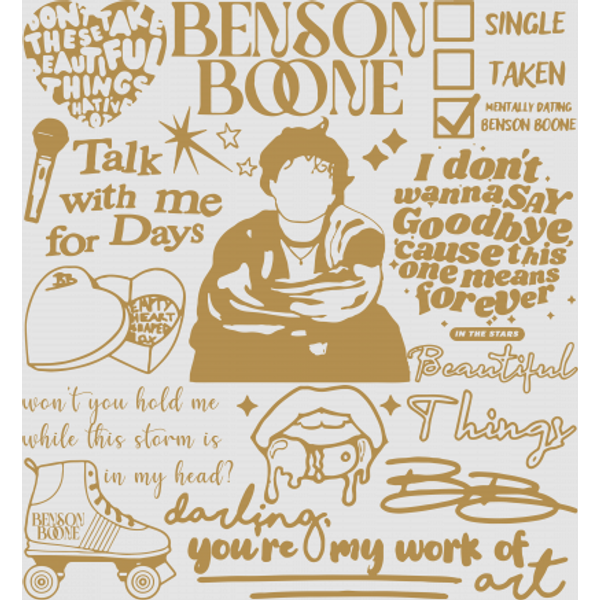 DON'T
THESE TAKE
BEAUTIFUL
THINGS
THAT I'VE
BENSON
BOONE
SINGLE
TAKEN
MENTALLY DATING
BENSON BOONE
Talk
with me
for Days
I don't
wanna SAY
Goodbye,
'cause this
one means
forever
IN THE STARS
BB
EMPTY
HEART
SHAPED
BOX
Beautiful
Things
won't you hold me
while this storm is
in my head?
BENSON
BOONE
BB
darling,
you're my work of
art